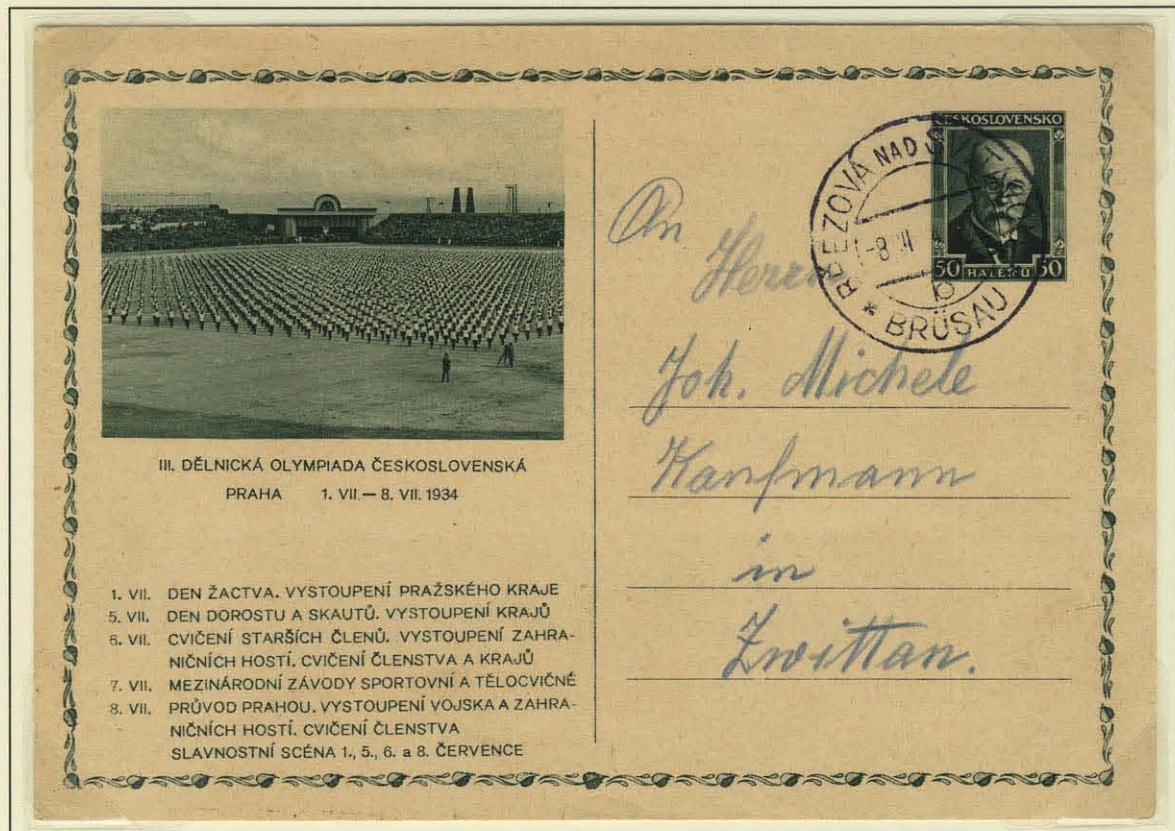 III. DĚLNICKÁ OLYMPIADA ČESKOSLOVENSKÁ
PRAHA 1. VII. — 8. VII. 1934
1. VII. DEN ŽACTVA. VYSTOUPENÍ PRAŽSKÉHO KRAJE
5. VII. DEN DOROSTU A SKAUTŮ. VYSTOUPENÍ KRAJŮ
6. VII. CVIČENÍ STARŠÍCH ČLENŮ. VYSTOUPENÍ ZAHRA-
NIČNÍCH HOSTÍ. CVIČENÍ ČLENSTVA A KRAJŮ
7. VII. MEZINÁRODNÍ ZÁVODY SPORTOVNÍ A TĚLOCVIČNÉ
8. VII. PRŮVOD PRAHOU. VYSTOUPENÍ VOJSKA A ZAHRA-
NIČNÍCH HOSTÍ. CVIČENÍ ČLENSTVA
SLAVNOSTNÍ SCÉNA 1., 5., 6. a 8. ČERVENCE
ČESKOSLOVENSKO
50 HALÉŘŮ 50
BŘEZOVÁ NAD
b
* BRÜSAU
An
Herrn
Joh. Michele
Kaufmann
in
Zwittau.